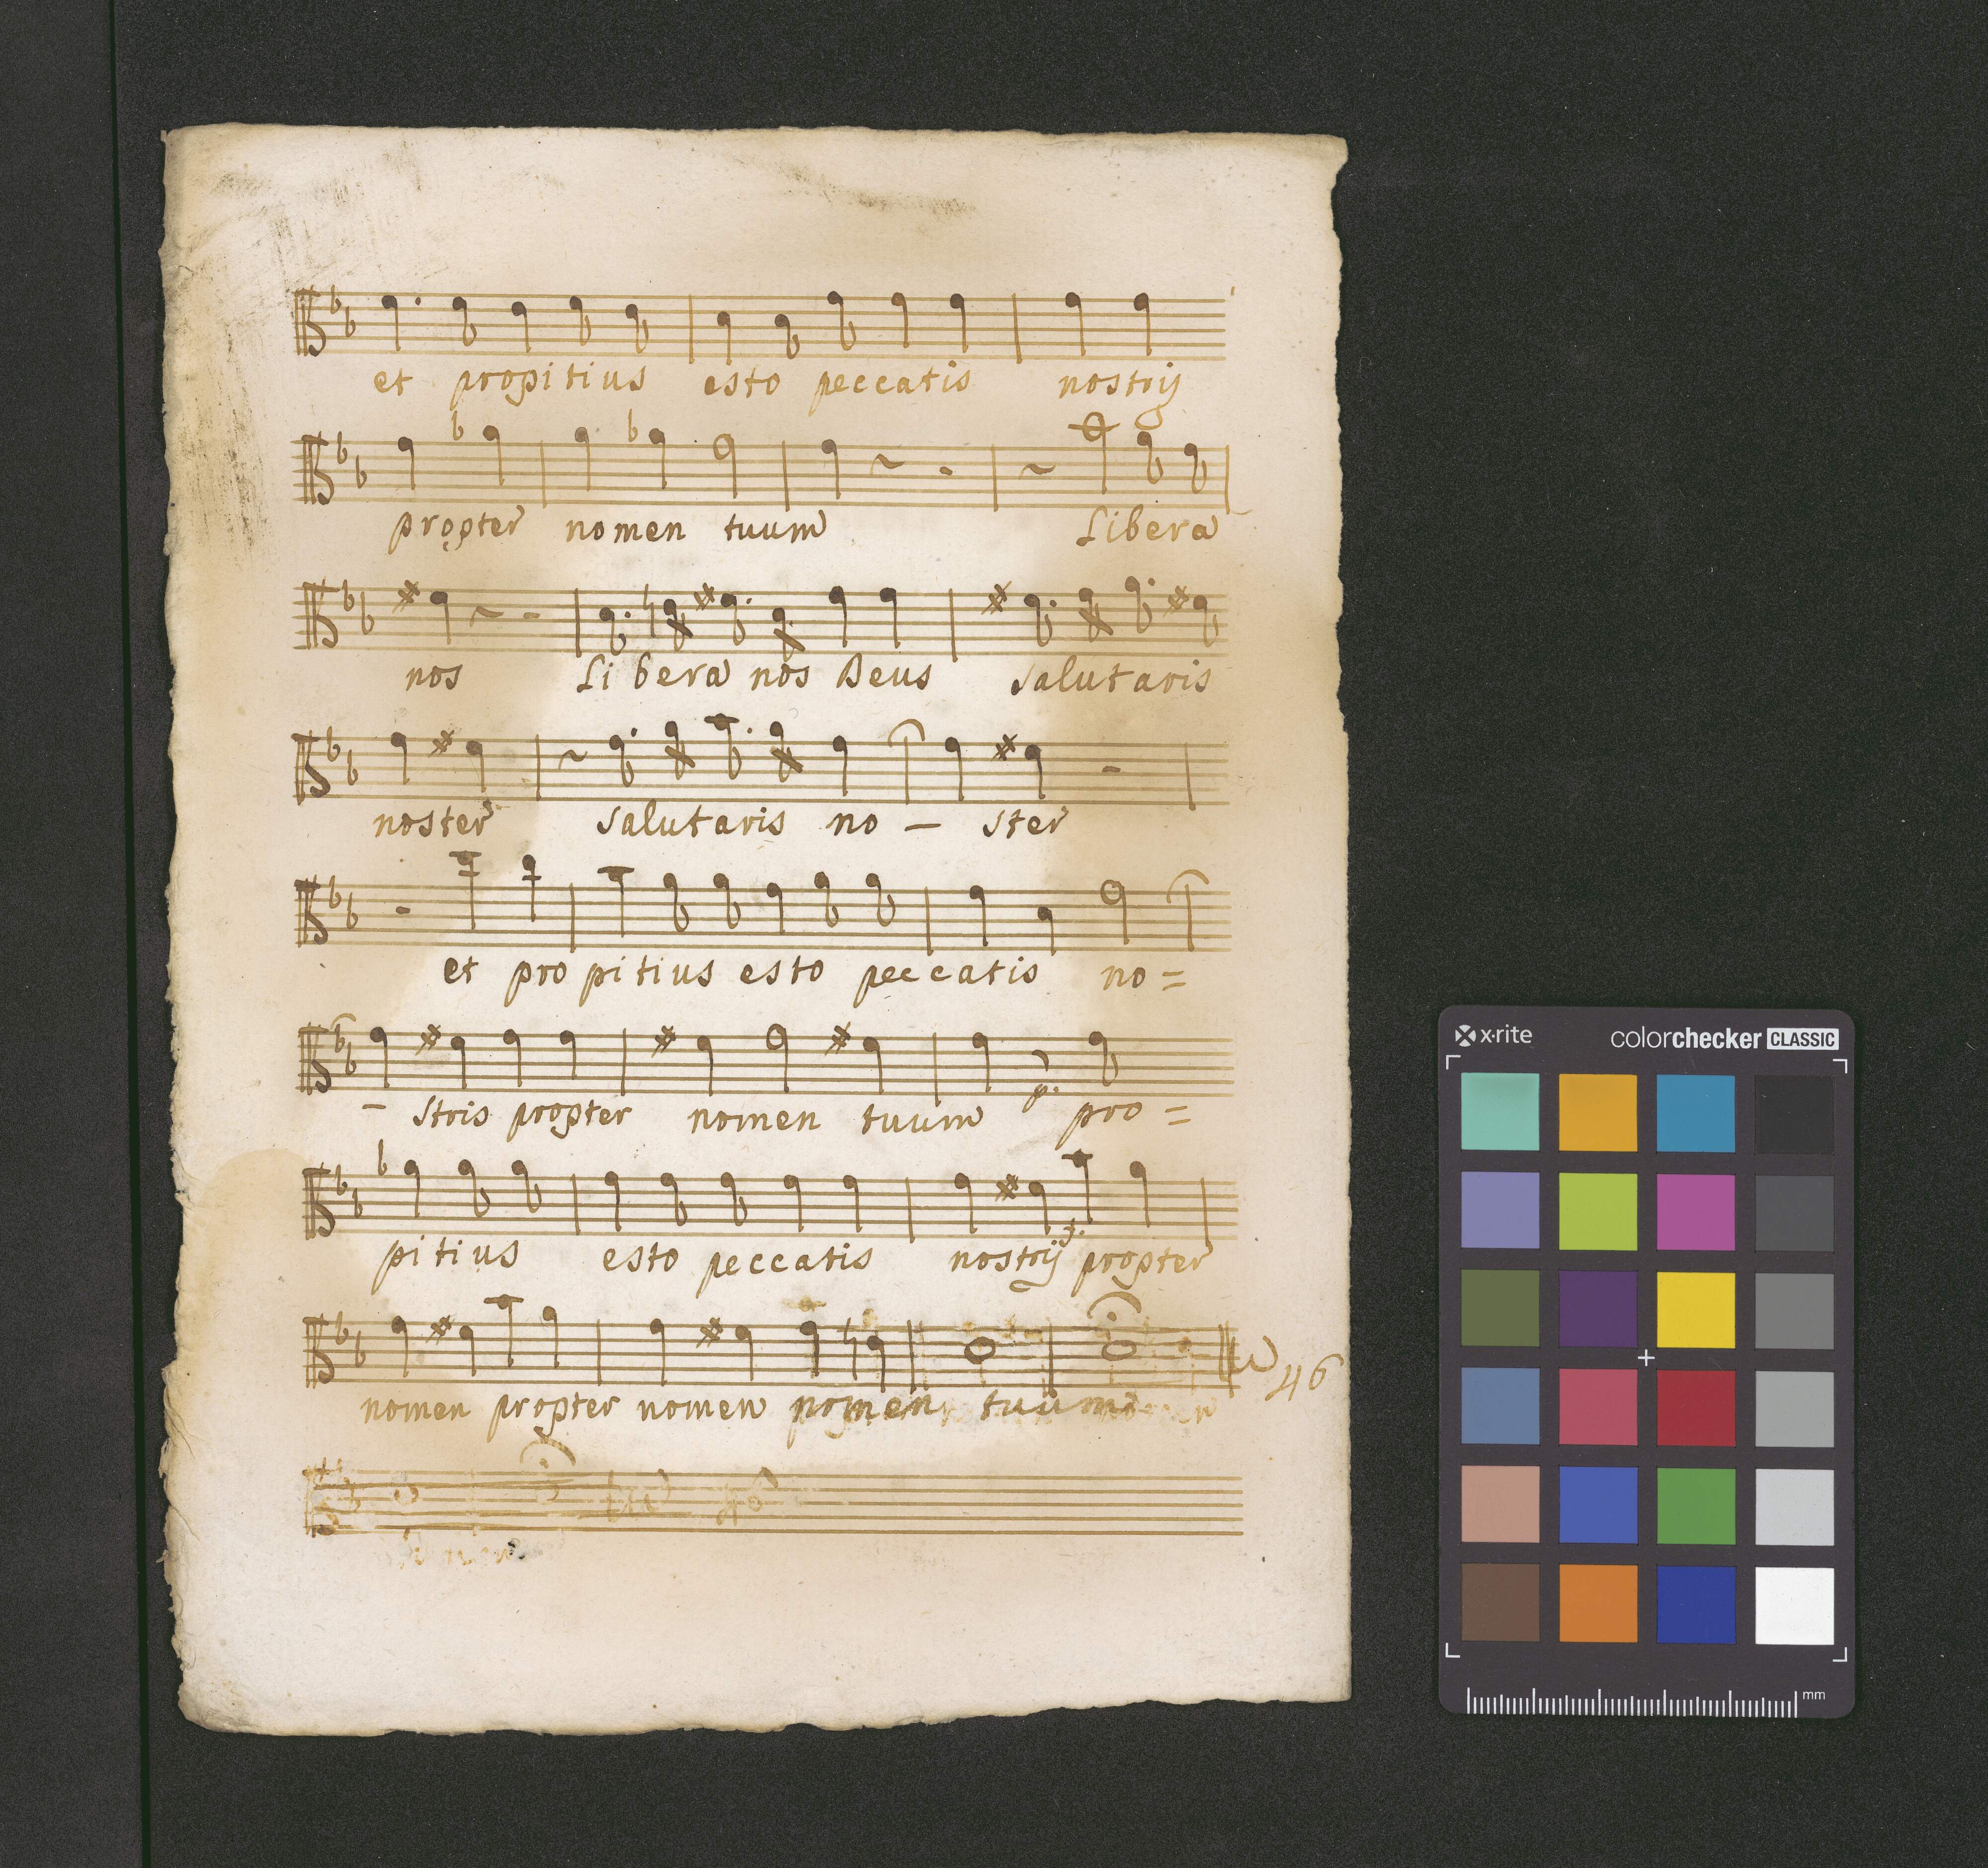 et propitius esto peccatis nostrij
propter nomen tuum Libera
nos Libera nos Deus salutaris
noster salutaris no – ster
et propitius esto peccatis no =
– stris propter nomen tuum pro =
p.
pitius esto peccatis nostrij propter
f.
nomen propter nomen nomen tuum
46
x-rite colorchecker CLASSIC
mm